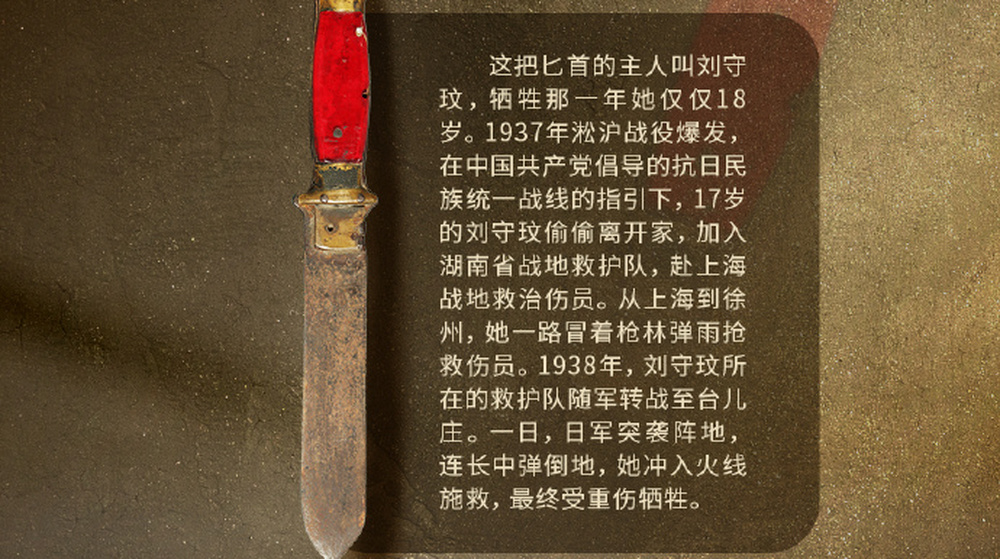 这把匕首的主人叫刘守
玟，牺牲那一年她仅仅18
岁。1937年淞沪战役爆发，
在中国共产党倡导的抗日民
族统一战线的指引下，17岁
的刘守玟偷偷离开家，加入
湖南省战地救护队，赴上海
战地救治伤员。从上海到徐
州，她一路冒着枪林弹雨抢
救伤员。1938年，刘守玟所
在的救护队随军转战至台儿
庄。一日，日军突袭阵地，
连长中弹倒地，她冲入火线
施救，最终受重伤牺牲。